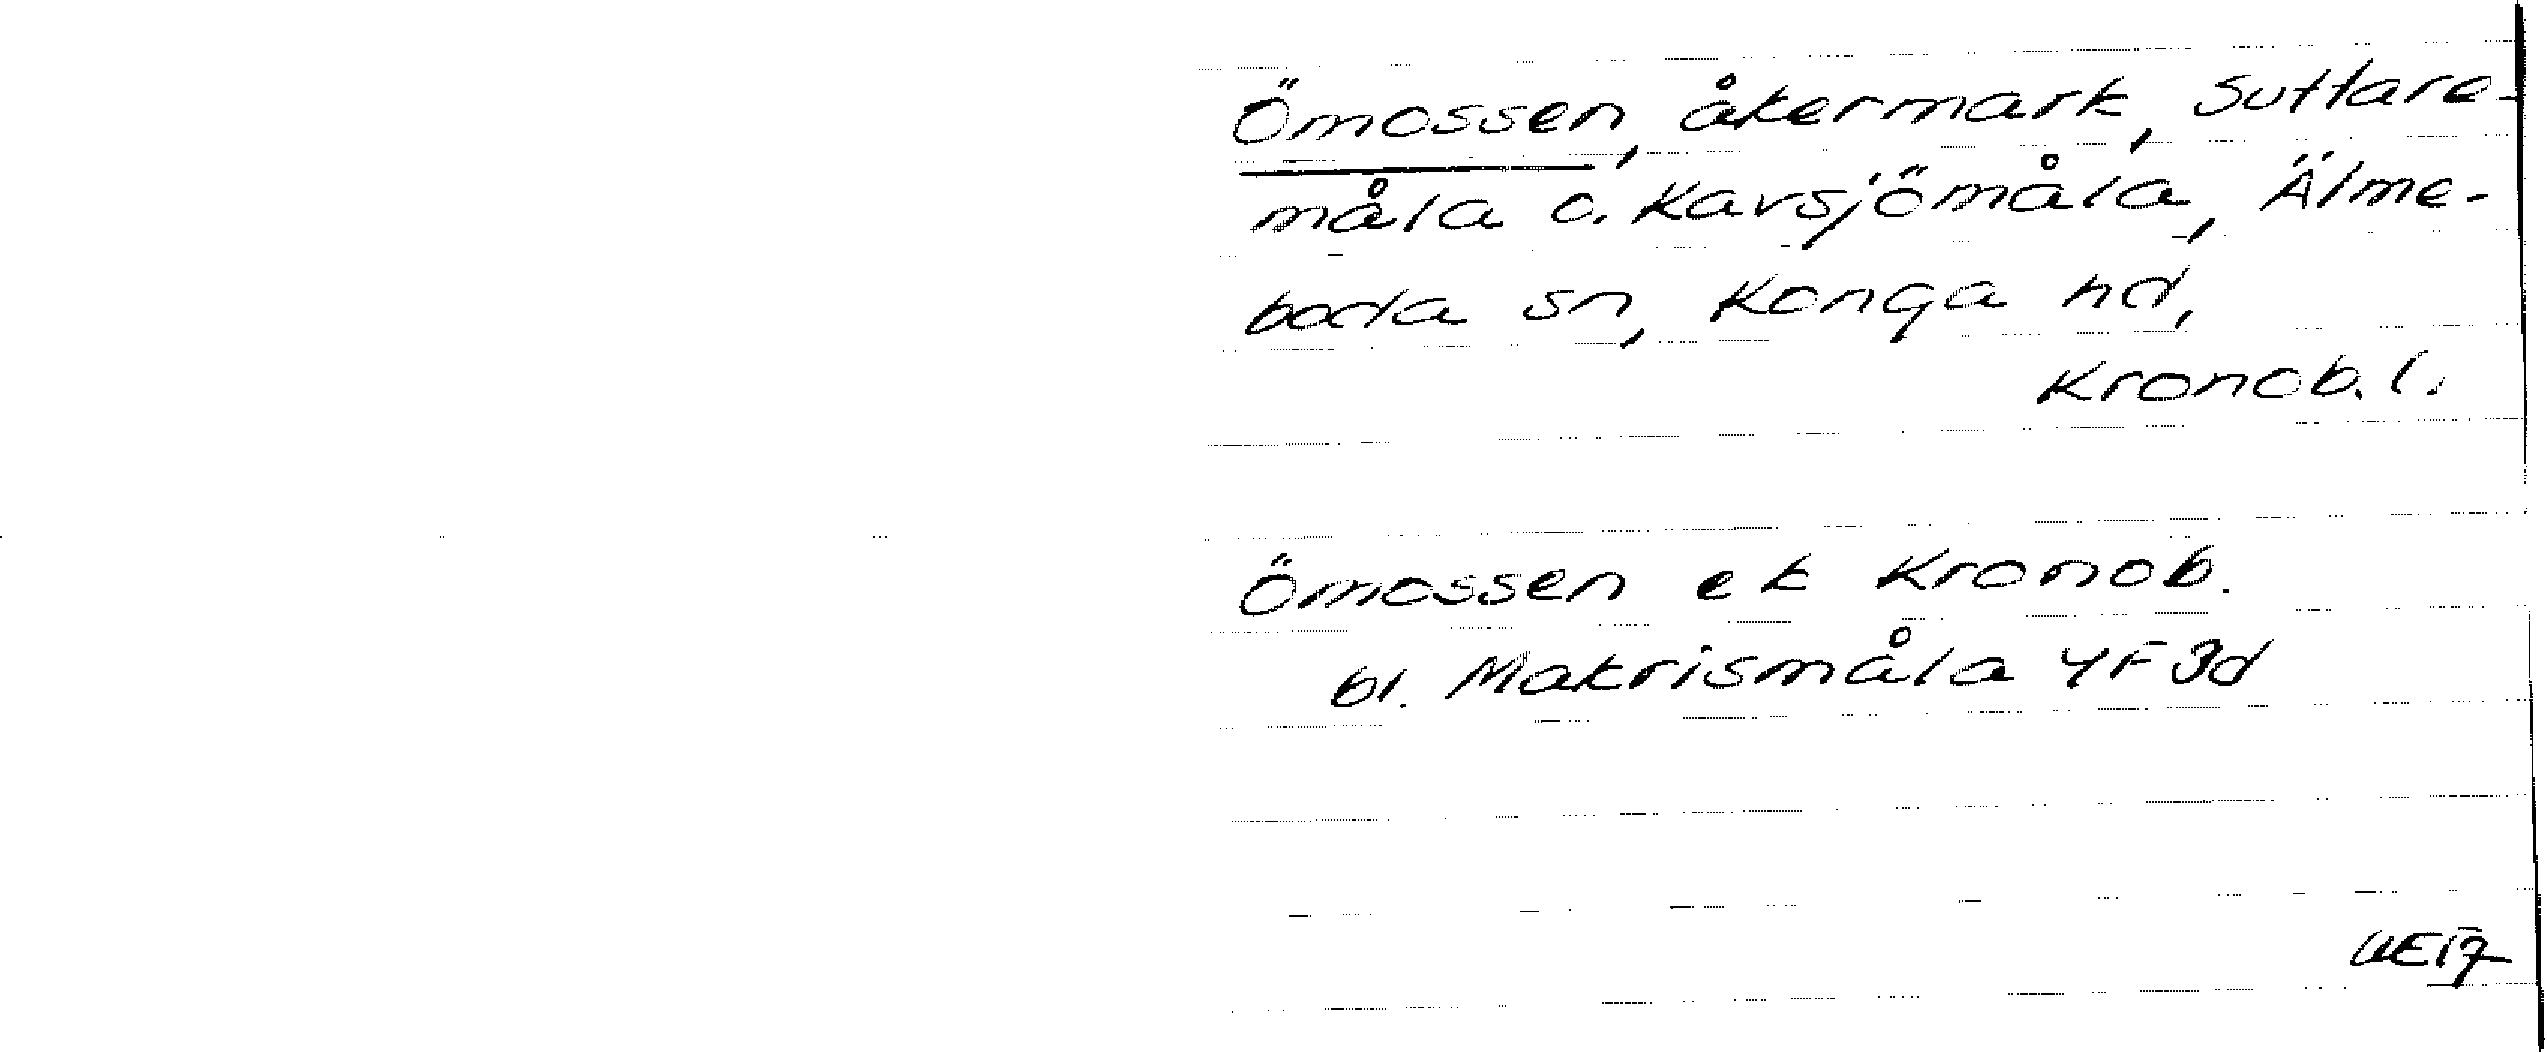 Ömossen, åkermark, Suttare-
måla o. Kavsjömåla, Älme-
boda sn, Konga hd,
Kronob. l.
Ömossen ek Kronob.
bl. Makrismåla 4F 3d